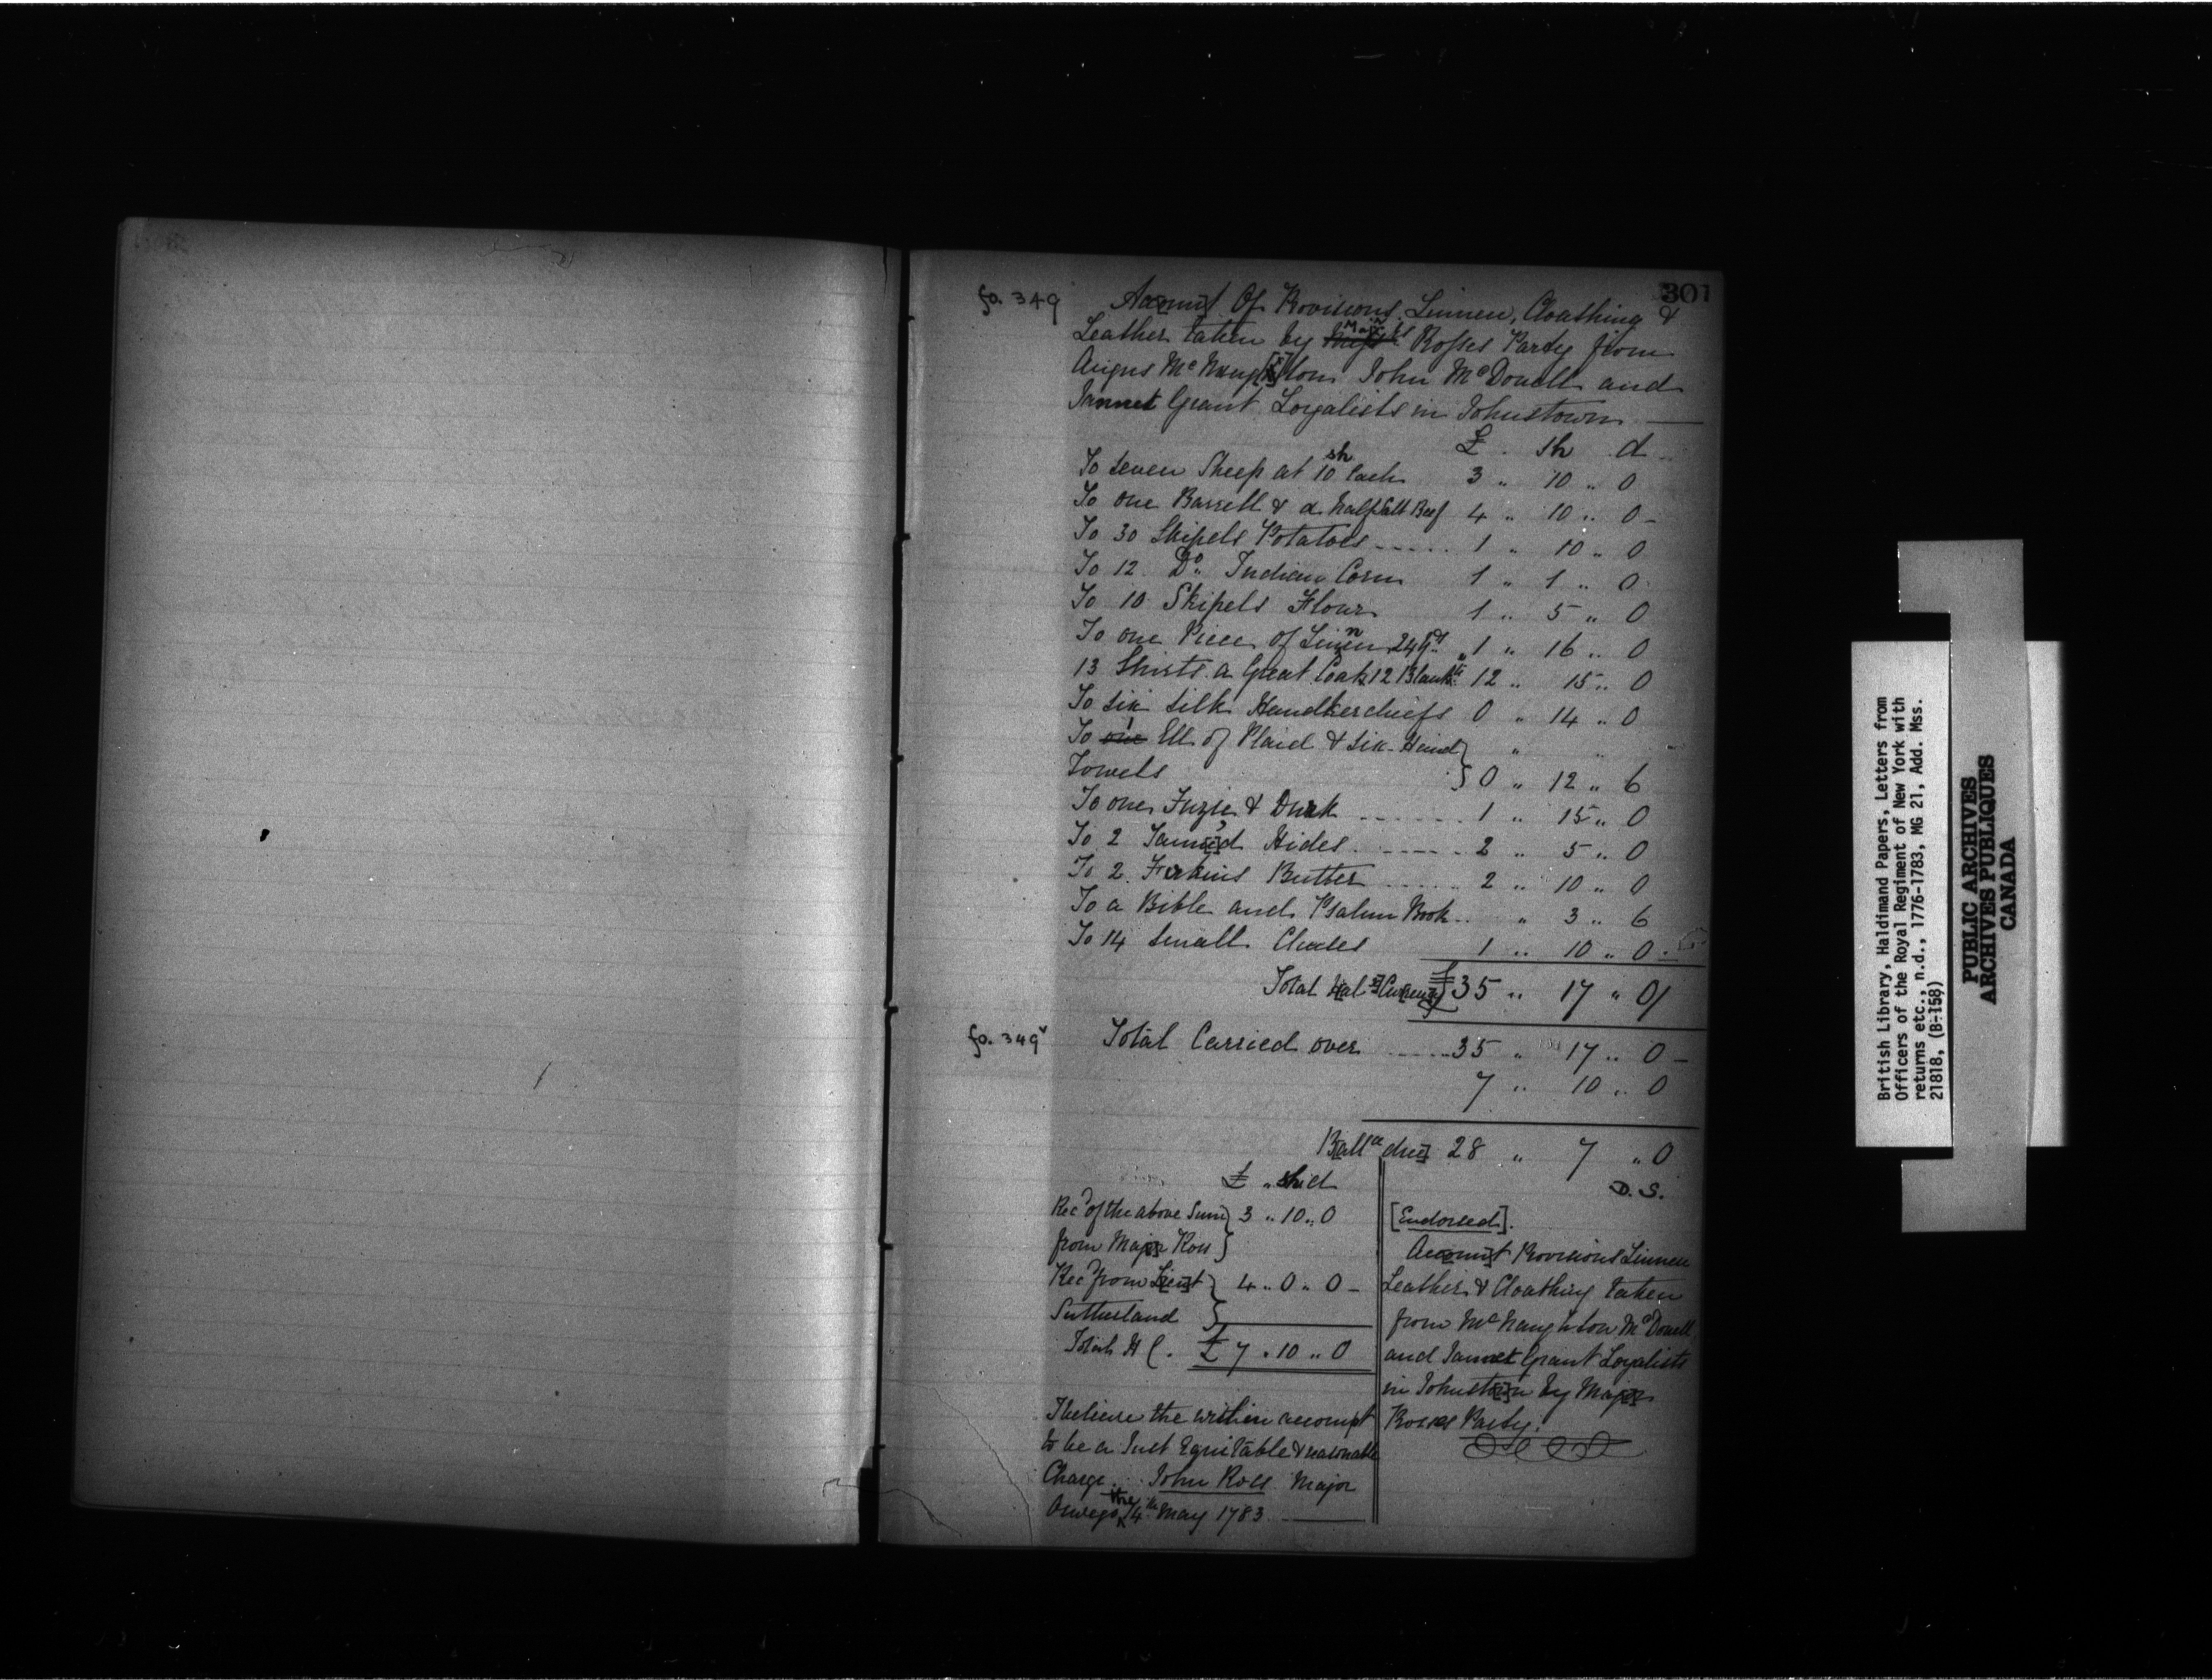 301
fo. 349 Acc[oun]t Of Provisions, Linnen, Cloathing &
Leather taken by Majr Rosses Party from
Angus McNaug[h]ton John McDonell and
Jannet Grant Loyalists in Johnstown —
£ . Sh d
To seven Sheep at 10 sh Each 3 " 10 " 0
To one Barrell & a half Salt Beef 4 " 10 " 0 -
To 30 Skipels Potatoes ..... 1 " 10 " 0
To 12 Do Indian Corn 1 " 1 " 0
To 10 Skipels Flour 1 " 5 " 0
To one Piece of Linnen 24 yds " 1 " 16 " 0
13 Shirts a Great Coat 12 Blankts 12 " 15 " 0
To six Silk Handkerchiefs 0 " 14 " 0
To one 1 Ell of Plaid & six Hand } "
Towels } 0 " 12 " 6
To one Fuzie & Durk ....... 1 " 15 " 0
To 2 Tann[e]d Hides ....... 2 " 5 " 0
To 2 Firkins Butter ...... 2 " 10 " 0
To a Bible and Psalm Book .. " 3 " 6
To 14 small Cheeses 1 " 10 " 0
Total Hal[.] Cu[rrency] £ 35 " 17 " 0/
fo. 349v Total Carried over ..... 35 " 17 " 0 -
7 " 10 " 0
B[alla] due] 28 " 7 " 0
D. S.
£ " Sh d
Recd of the above Sum } 3 " 10 " 0
from Maj[o]r Ross }
Recd from L[ieu]t } 4 " 0 " 0 -
Sutherland }
Total H C. £ 7 " 10 " 0
I believe the written accompt
to be a Just Equitable & reasonable
Charge. John Ross Major
Oswego the 14th May 1783 —
[Endorsed].
Acc[oun]t Provisions Linnen
Leather & Cloathing taken
from McNaughton McDonell
and Jannet Grant Loyalists
in Johnst[ow]n by Maj[o]r
Rosses Party.
British Library, Haldimand Papers, Letters from
Officers of the Royal Regiment of New York with
returns etc., n.d., 1776-1783, MG 21, Add. Mss.
21818, (B-158)
PUBLIC ARCHIVES
ARCHIVES PUBLIQUES
CANADA